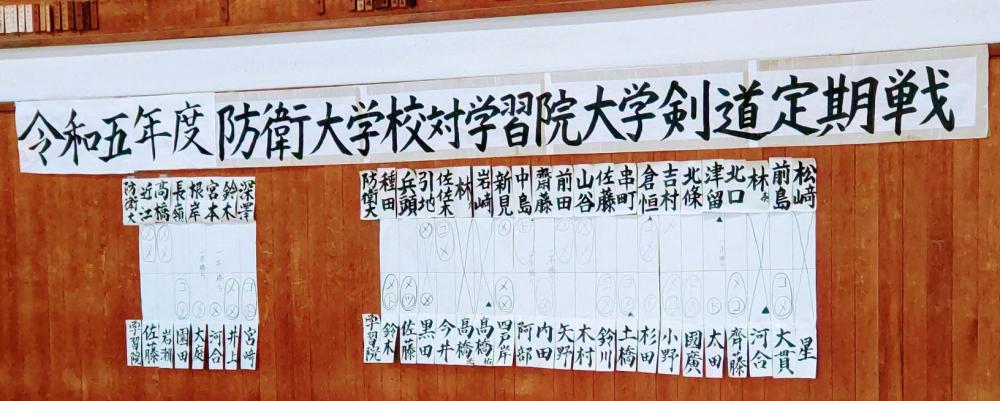 令和五年度 防衛大学校対学習院大学剣道定期戦
防衛大 近江 高橋 長嶺 根岸 宮本 鈴木 深澤
学習院 佐藤 岩瀬 園田 大庭 河合 井上 宮崎
防衛大 種田 兵頭 引地 佐佐木 林 岩崎 新見 中島 齋藤 前田 山谷 佐藤 串町 倉恒 吉村 北條 津留 北口 林 前島 松﨑
学習院 鈴木 佐藤 黒田 今井 髙橋 髙橋 四戸岸 阿部 内田 矢野 木村 鈴川 土橋 杉田 小野 國廣 太田 齊藤 河合 大貫 星